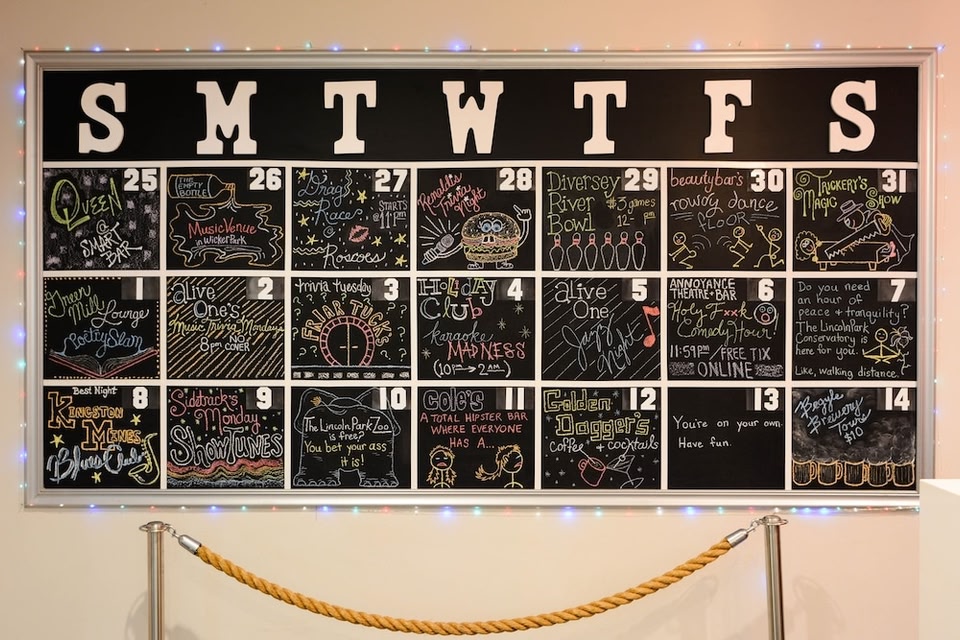 S M T W T F S
25
Queen
@
SMART
BAR
26
THE
EMPTY
BOTTLE
Music Venue
in Wicker Park
27
Drag
Race!
STARTS
@ 11pm
Roscoes
28
Renaldi's
Trivia
Night
29
Diversey
River
Bowl
$3 games
12 - pm
30
beautybar's
rowdy dance
FLOOR
31
TRICKERY'S
MAGIC SHOW
1
Green
Mill Lounge
Poetry Slam
2
alive
One's
Music Trivia Mondays
8pm NO
COVER
3
trivia tuesday
FRIAR TUCK
4
HOLIDAY
Club
karaoke
MADNESS
(10pm → 2AM)
5
alive
One
Jazz
Night
6
ANNOYANCE
THEATRE + BAR
Holy F**k
Comedy Hour!
11:59pm / FREE TIX
ONLINE
7
Do you need
an hour of
peace & tranquility?
The Lincoln Park
Conservatory is
here for you.
Like, walking distance.
8
Best Night
KINGSTON
MINES
Blues Club
9
Sidetrack's
Monday
SHOWTUNES
10
The Lincoln Park Zoo
is free?
You bet your ass
it is!
11
COLE'S
A TOTAL HIPSTER BAR
WHERE EVERYONE
HAS A...
12
Golden
Dagger's
coffee + cocktails
13
You're on your own.
Have fun.
14
Begyle
Brewery
Tours
$10